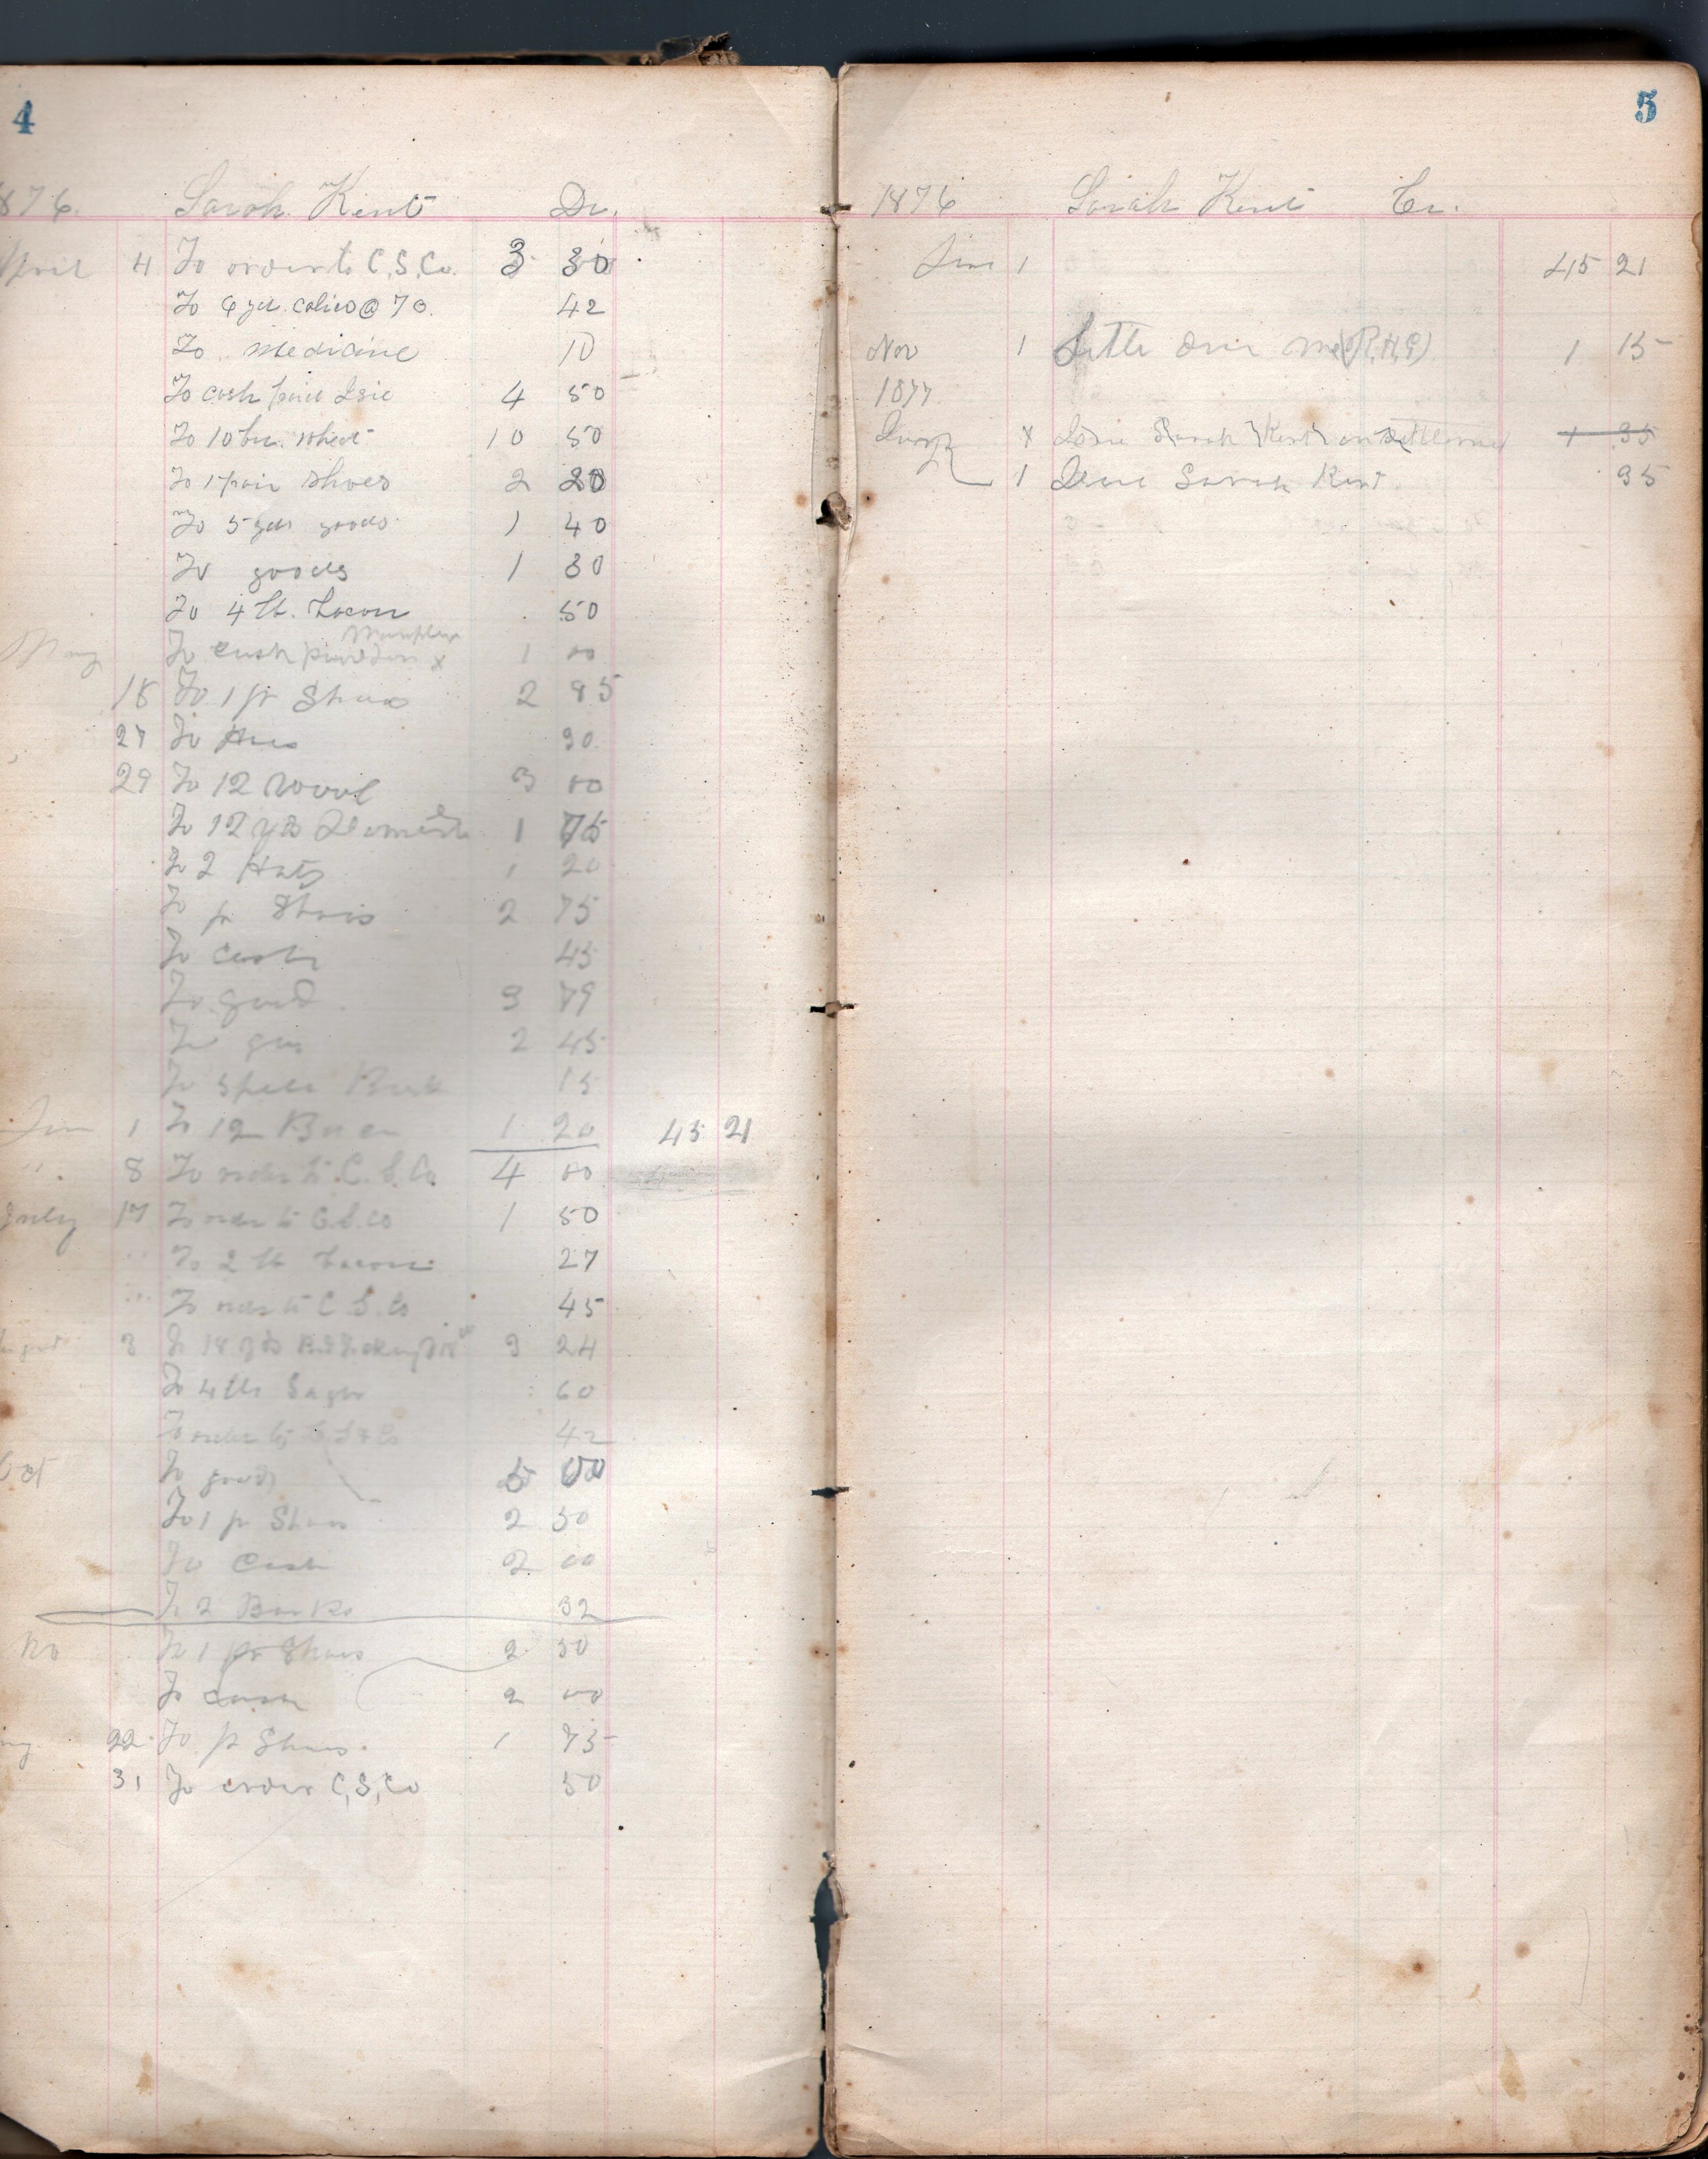 4
1876. Sarah Kent Dr.
April 4 To order to C.S.Co. 3 30
To 6 yds. calico @ 7c. 42
To medicine 10
To cash paid 4 50
To 10 bu. wheat 10 50
To 1 pair shoes 2 20
To 5 yds goods 1 40
To goods 1 30
To 4 lb. bacon 50
May To cash paid 1 00
18 To 1 pr Shoes 2 85
27 To 30
29 To 12 Wool 3 00
To 12 yds Domestic 1 75
To 2 Hats 1 20
To pr Shoes 2 75
To Cash 45
To good 3 79
To 2 45
To Spell Book 15
Jun 1 To 12 1 20 45 21
" 8 To order to C.S.Co. 4 00
July 17 To order to C.S.Co 1 50
" To 2 lb bacon 27
" To order to C.S.Co 45
3 To 18 yds 3 24
To 4 lbs 60
To order to 42
Oct To goods 5 00
To 1 pr Shoes 2 50
To Cash 2 00
To 2 Books 32
No To 1 pr Shoes 2 50
To cash 2 00
22 To pr Shoes. 1 75
31 To order C,S,Co 50
5
1876 Sarah Kent Cr.
June 1 45 21
Nov 1 Settle due me (R,H,G) 1 15
1877
x Sarah Kent on Settlement 1 35
1 Due Sarah Kent. 95